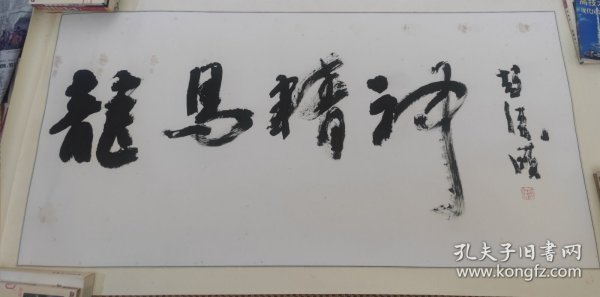 龍馬精神
孔夫子旧書网
www.kongfz.com